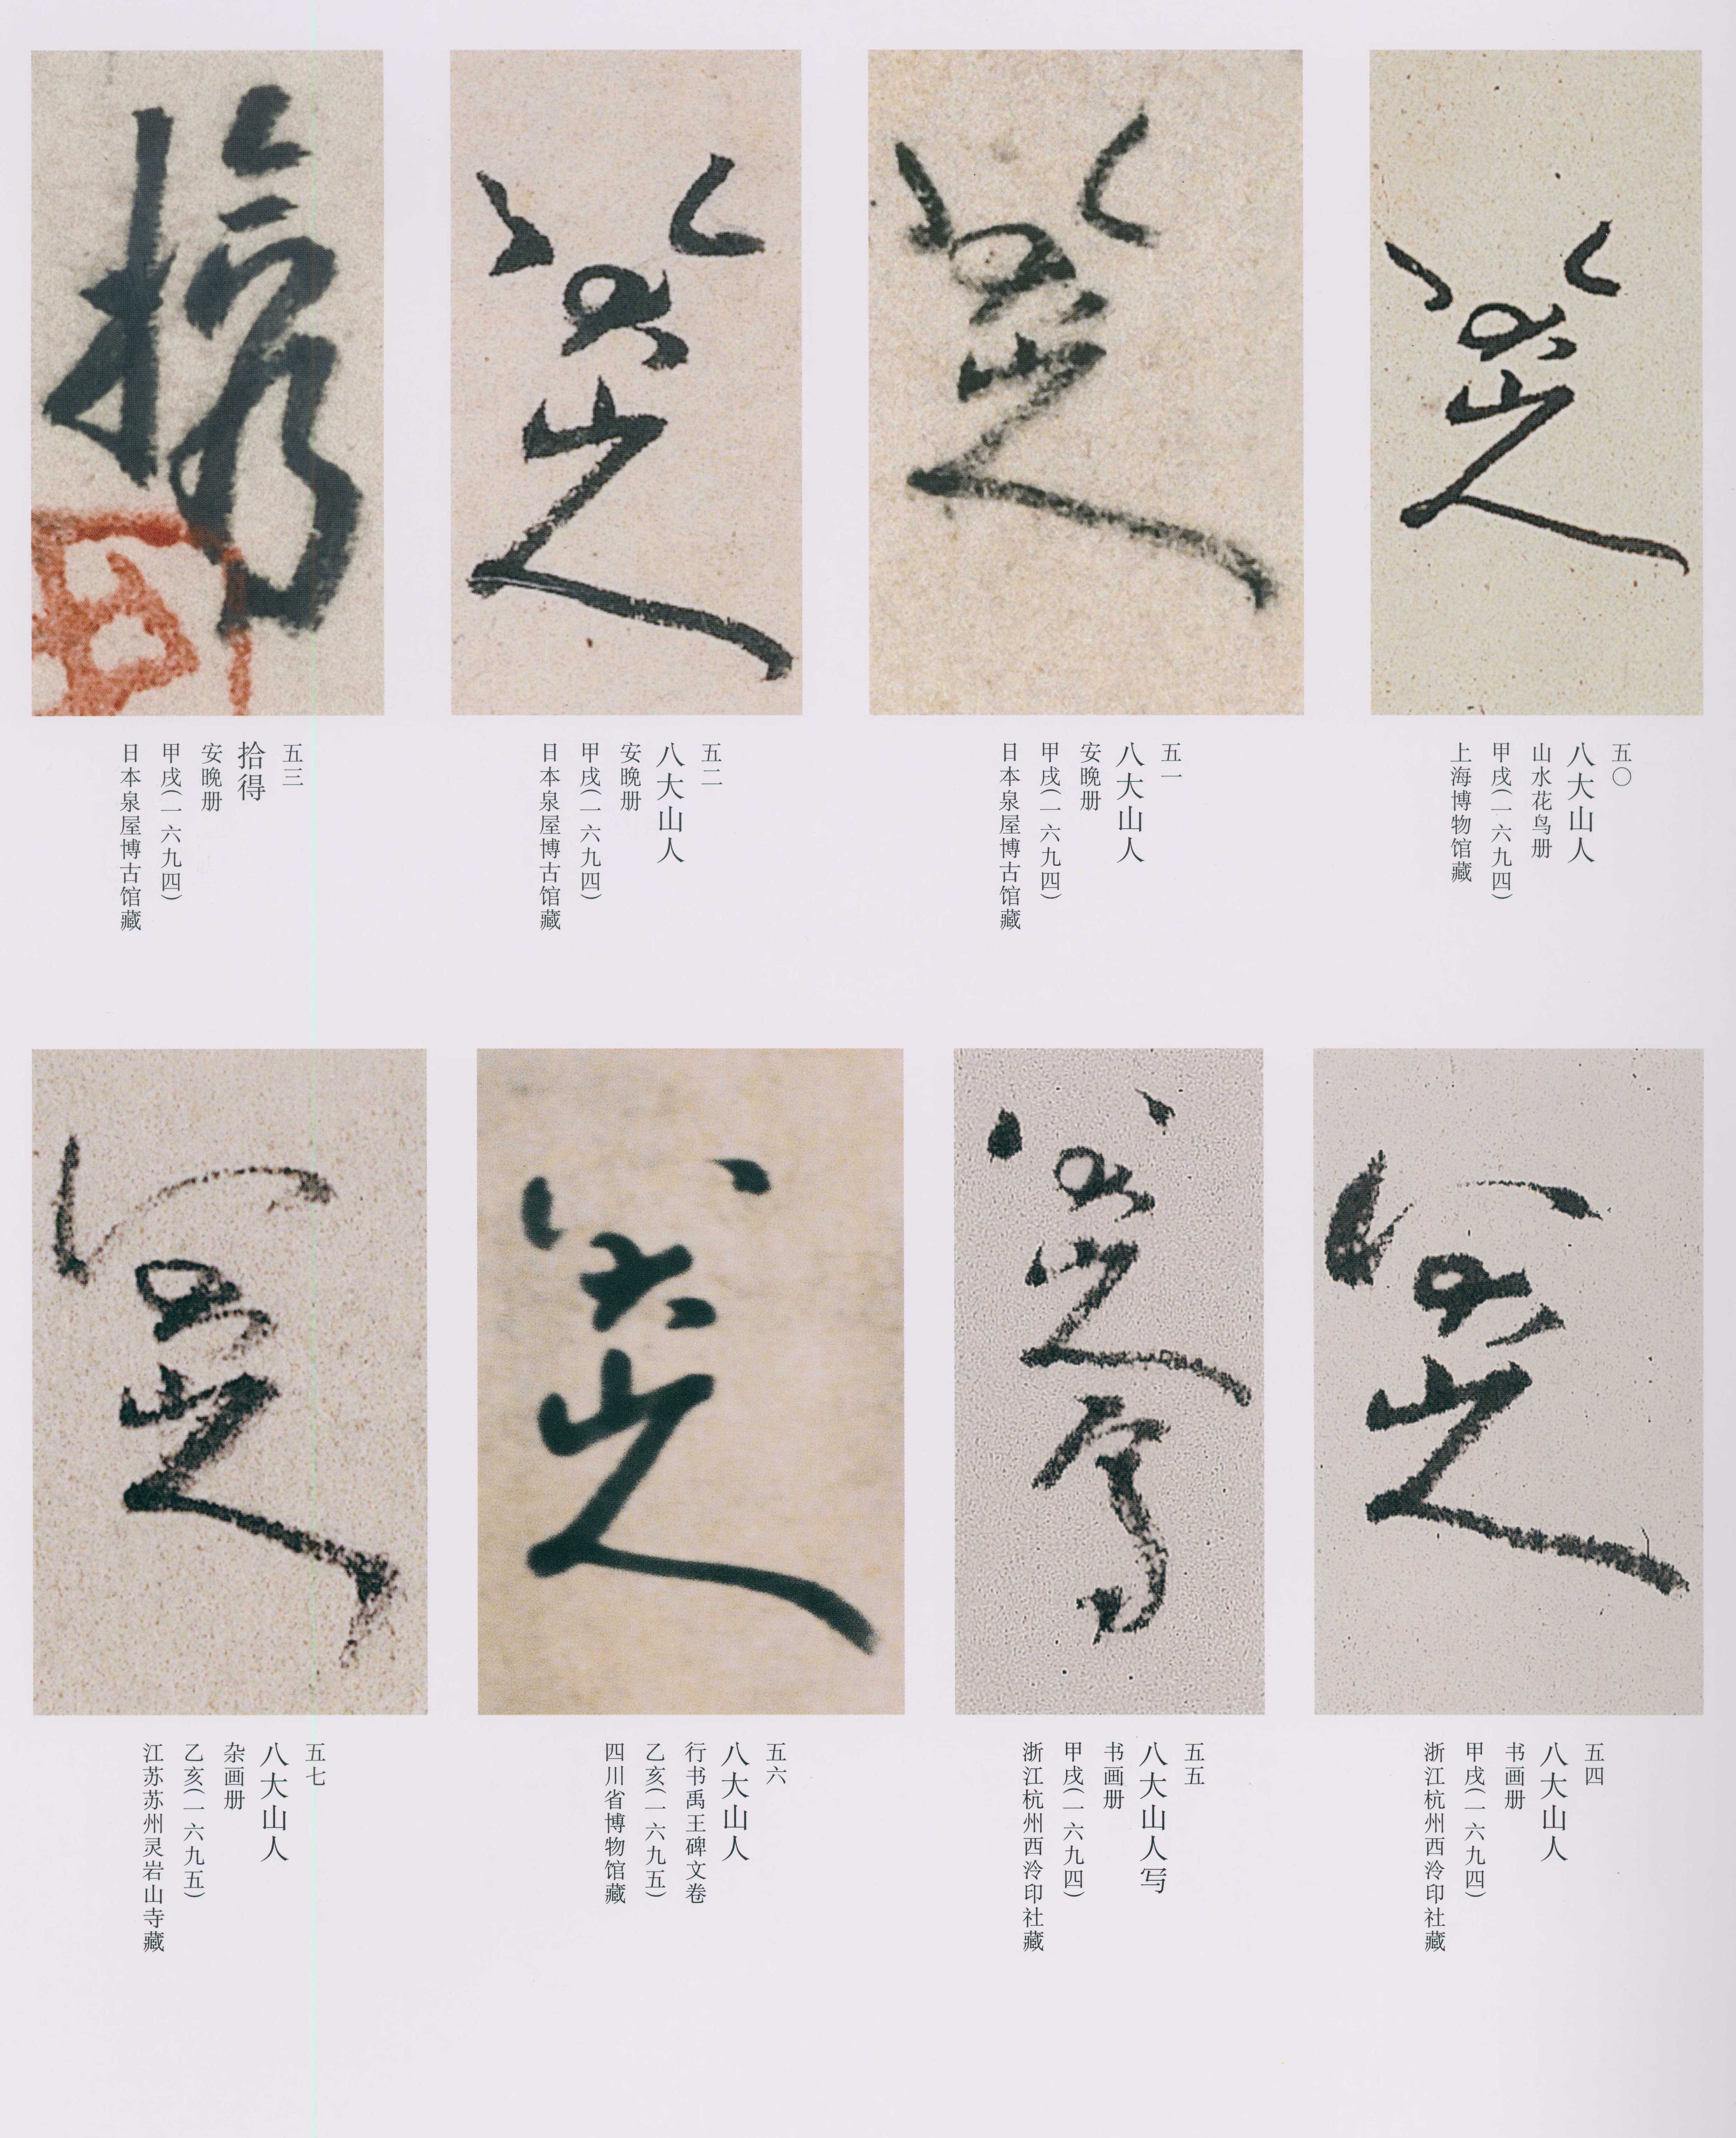 五〇
八大山人
山水花鸟册
甲戌(一六九四)
上海博物馆藏
五一
八大山人
安晚册
甲戌(一六九四)
日本泉屋博古馆藏
五二
八大山人
安晚册
甲戌(一六九四)
日本泉屋博古馆藏
五三
拾得
安晚册
甲戌(一六九四)
日本泉屋博古馆藏
五四
八大山人
书画册
甲戌(一六九四)
浙江杭州西泠印社藏
五五
八大山人写
书画册
甲戌(一六九四)
浙江杭州西泠印社藏
五六
八大山人
行书禹王碑文卷
乙亥(一六九五)
四川省博物馆藏
五七
八大山人
杂画册
乙亥(一六九五)
江苏苏州灵岩山寺藏